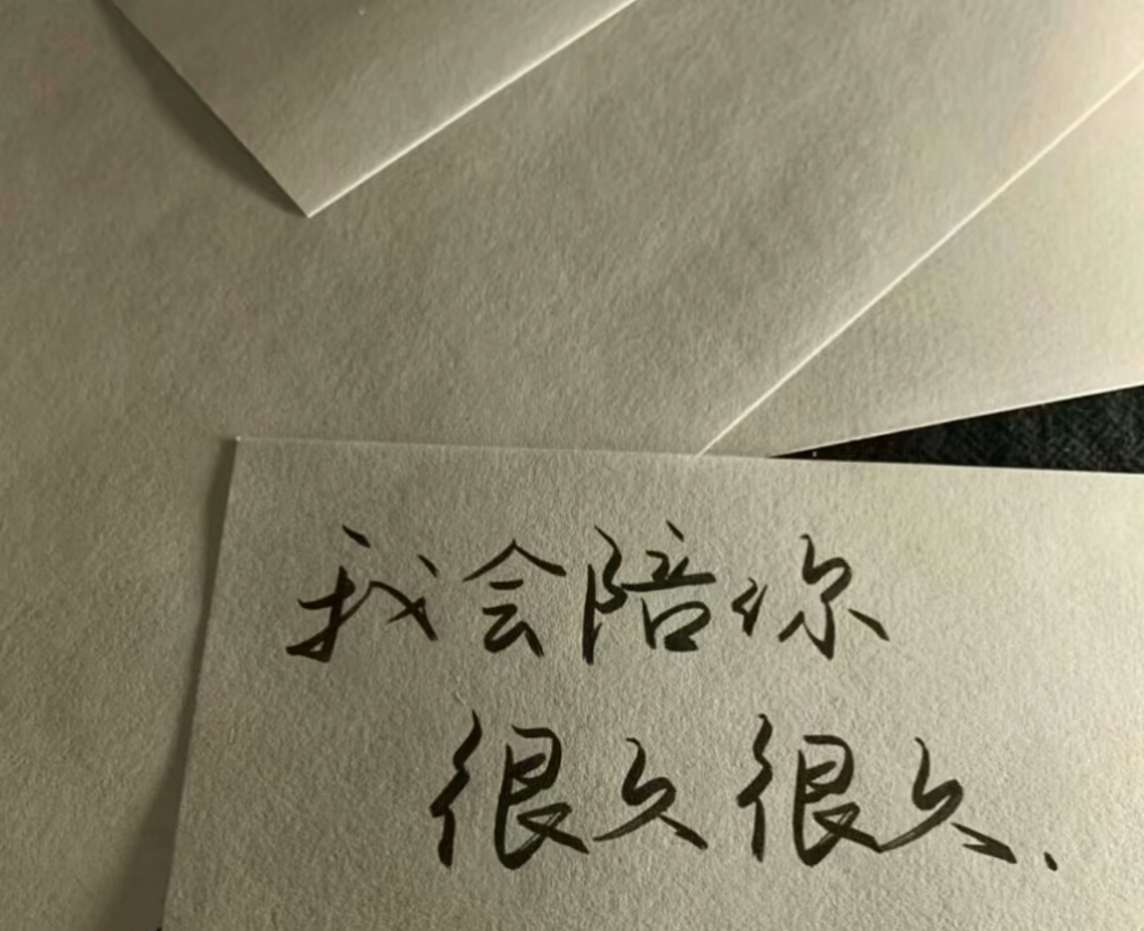 我会陪你
很久很久.